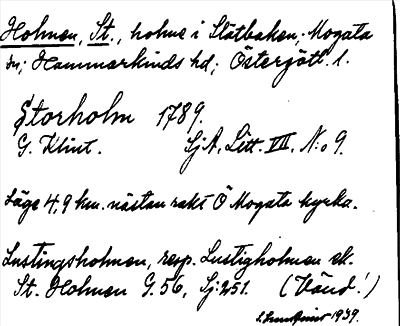 Holmen, St., holme i Slätbaken, Mogata
sn; Hammarkinds hd; Östergötl. l.
Storholm 1789.
G. Klint. SjA, Litt. VII, N:o 9.
Läge 4,9 km. nästan rakt Ö Mogata kyrka.
Lustingsholmen, resp. Lustigholmen el.
St. Holmen G. 56, Sj:251. (Vänd!)
1939.